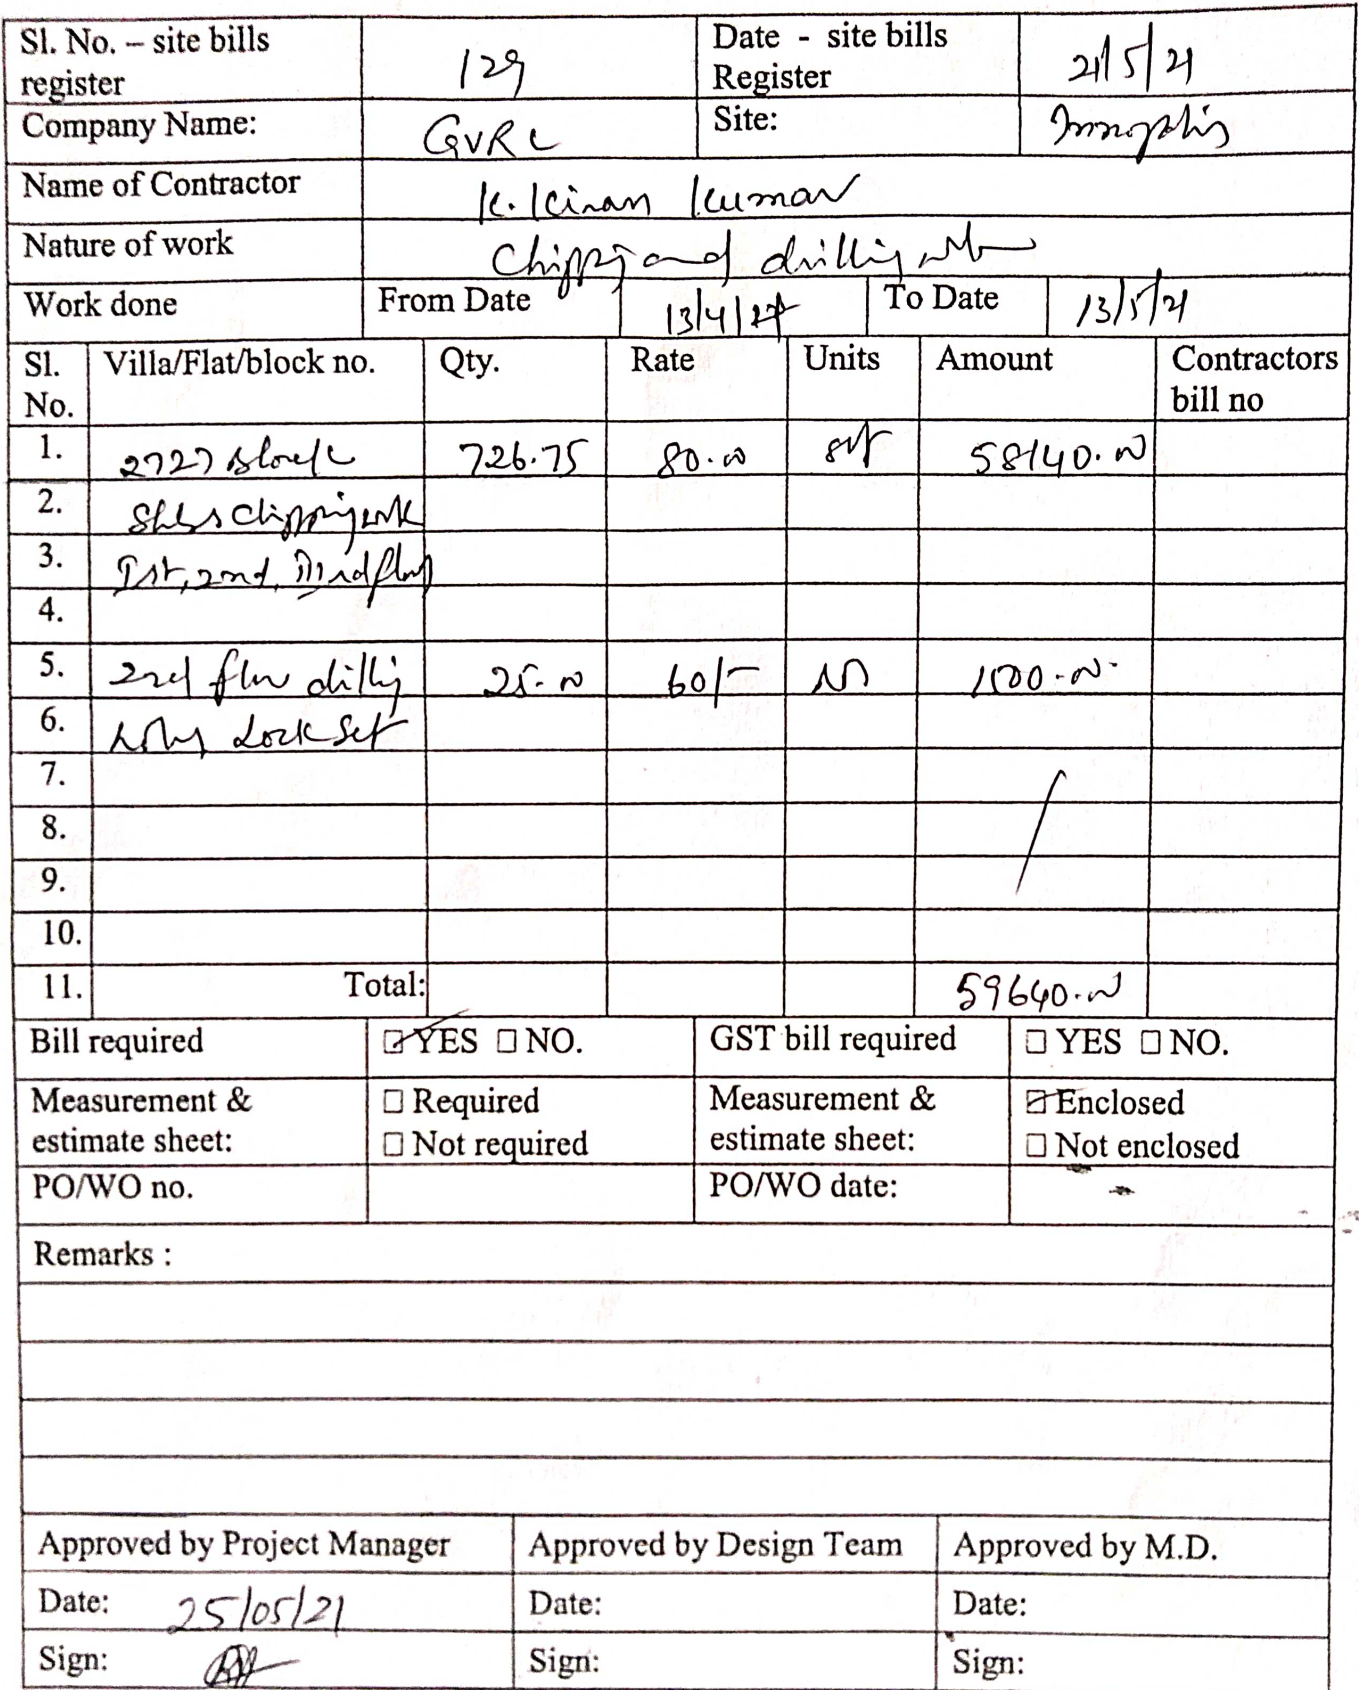 Sl. No. – site bills register 129 Date - site bills Register 21/5/21
Company Name: GVRC Site: Innopolis
Name of Contractor K. Kiran Kumar
Nature of work Chipping and drilling work
Work done From Date 13/4/21 To Date 13/5/21
Sl. No. Villa/Flat/block no. Qty. Rate Units Amount Contractors bill no
1. 2727 Block 726.75 80.00 sft 58140.00
2. Slabs chipping work
3. Ist, 2nd, IIIrd floor
4.
5. 2nd floor drilling 25.00 60/- 1500.00
6. Lock Set
7.
8.
9.
10.
11. Total: 59640.00
Bill required ☑ YES ☐ NO. GST bill required ☐ YES ☐ NO.
Measurement & estimate sheet: ☐ Required ☐ Not required Measurement & estimate sheet: ☑ Enclosed ☐ Not enclosed
PO/WO no. PO/WO date:
Remarks :
Approved by Project Manager Approved by Design Team Approved by M.D.
Date: 25/05/21 Date: Date:
Sign: Sign: Sign: